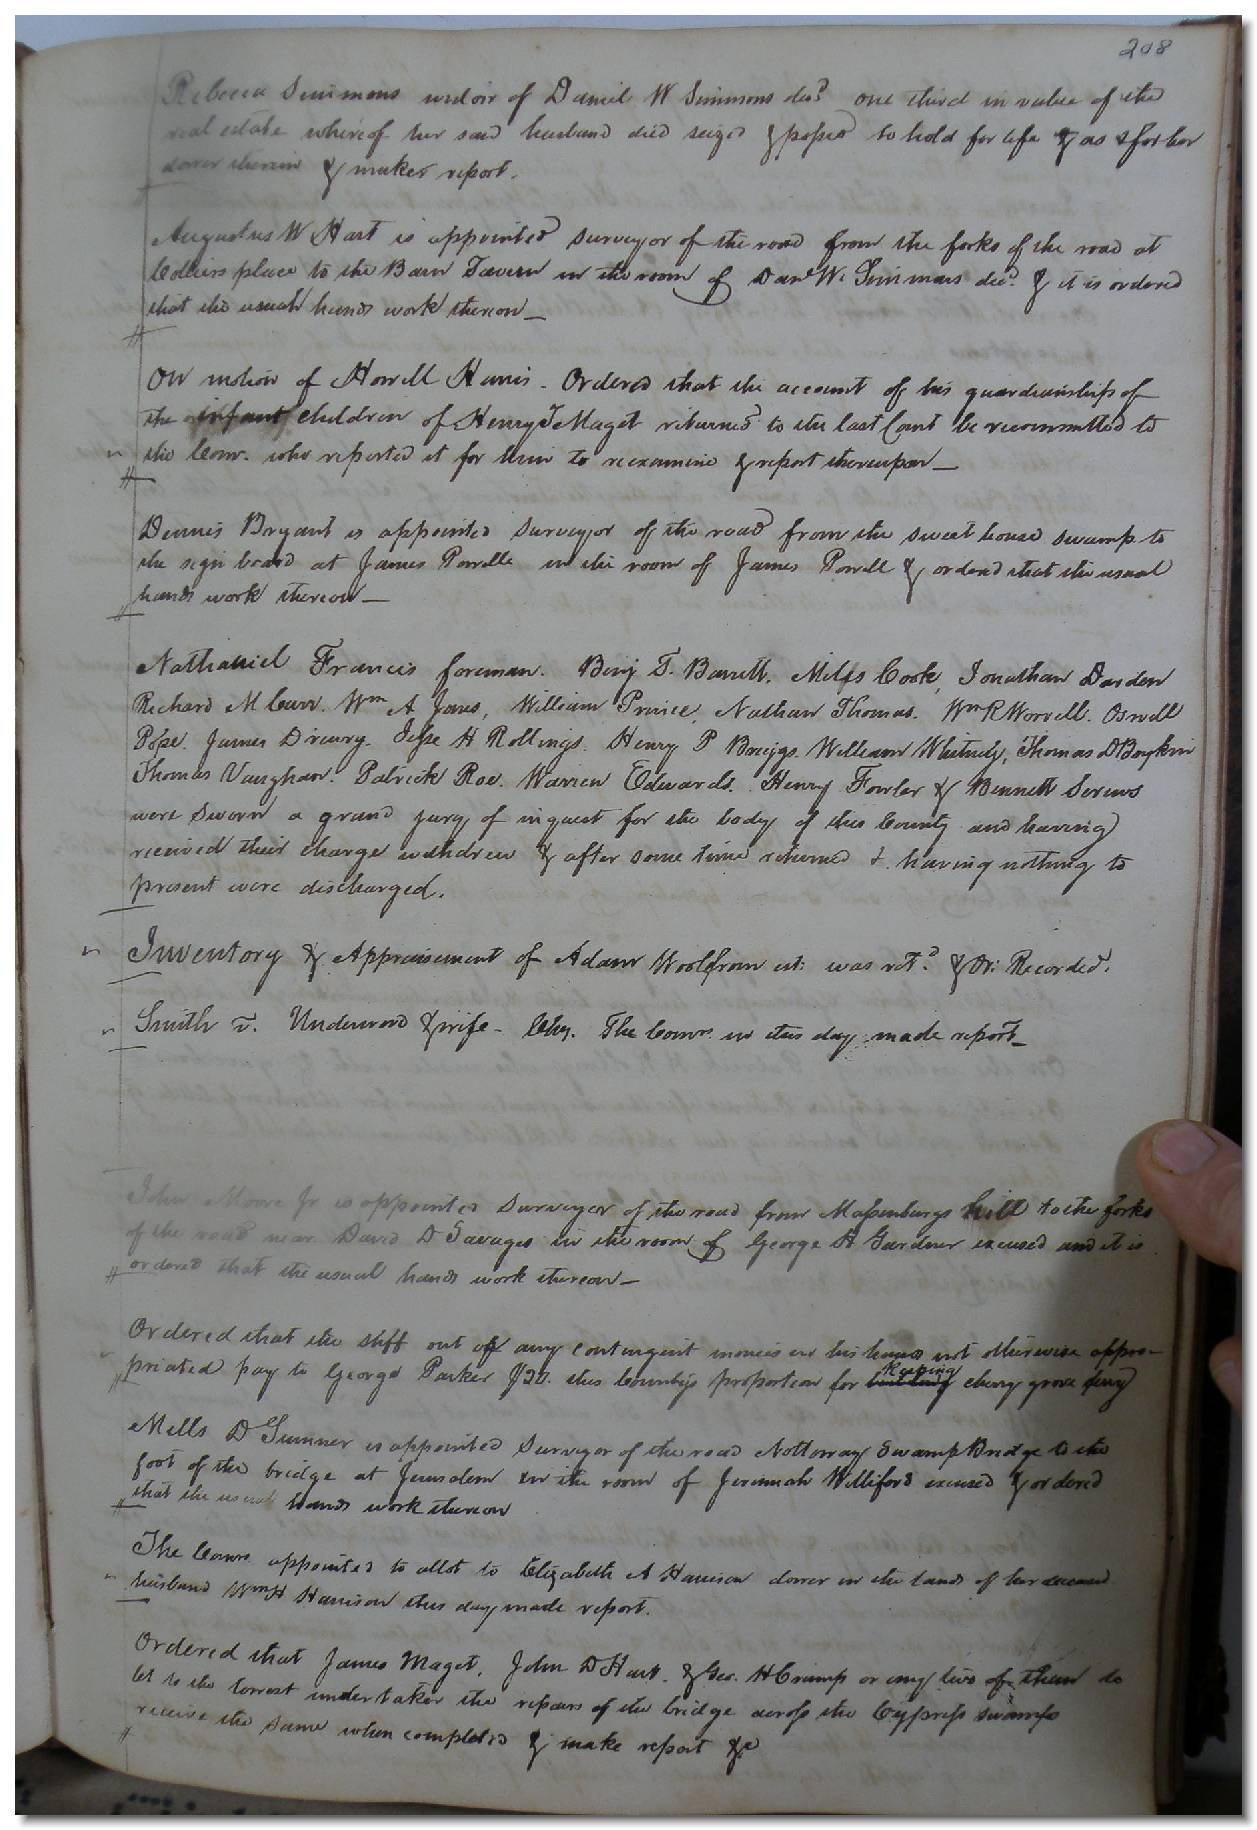 208
Rebecca Simmons widow of Daniel W Simmons decd one third in value of the
real estate whereof her said husband died seized & possed to hold for life & as & for her
dower therein & makes report.
Augustus W Hart is appointed surveyor of the road from the forks of the road at
Colliers place to the Barn Tavern in the room of Danl W. Simmons decd. & it is ordered
that the usual hands work thereon_
On motion of Howell Harris - Ordered that the account of his guardianship of
the infant children of Henry T Maget returned to the last Court be recommitted to
the Comr. who reported it for him to reexamine & report thereupon_
Dennis Bryant is appointed surveyor of the road from the sweet house swamp to
the sign board at James Powells in the room of James Powell & ordered that the usual
hands work thereon_
Nathaniel Francis foreman. Benj T. Barrett. Mills Cook, Jonathan Darden
Richard M Carr. Wm A Jones, William Prince, Nathan Thomas. Wm R Worrell. Oswell
Pope. James Drewry. Jesse H Rollings. Henry P Briggs. William Whitney, Thomas D Boykin
Thomas Vaughan. Patrick Roe. Warren Edwards. Henry Fowler & Bennett Screws
were sworn a grand jury of inquest for the body of this County and having
received their charge withdrew & after some time returned & having nothing to
present were discharged.
Inventory & Appraisement of Adam Woolfrom est: was retd. & Or: Recorded.
Smith v. Underwood & wife - Chy. The Comrs. in this day made report_
John Moore Jr is appointed surveyor of the road from Massenburgs hill to the forks
of the road near David D Savages in the room of George A Gardner excused and it is
ordered that the usual hands work thereon_
Ordered that the shff out of any contingent monies in his hands not otherwise appro-
priated pay to George Parker $20. this Countys proportion for keeping cherry grove ferry
Mills D Sumner is appointed surveyor of the road Nottoway Swamp Bridge to the
foot of the bridge at Jerusalem in the room of Jeremiah Williford excused & ordered
that the usual hands work thereon
The Comrs. appointed to allot to Elizabeth A Harrison dower in the lands of her deceased
husband Wm H Harrison this day made report.
Ordered that James Maget, John D Hart. & Geo. H Crump or any two of them do
let to the lowest undertaker the repairs of the bridge across the Cypress swamp
receive the same when completed & make report &c